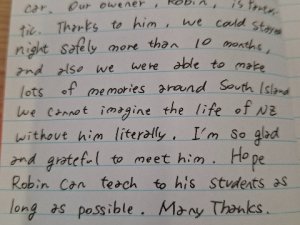 car. Our owener, Robin, is fantas
tic. Thanks to him, we could stayed
night safely more than 10 months,
and also we were able to make
lots of memories around South Island
We cannot imagine the life of NZ
without him literally. I'm so glad
and grateful to meet him. Hope
Robin can teach to his students as
long as possible. Many Thanks.